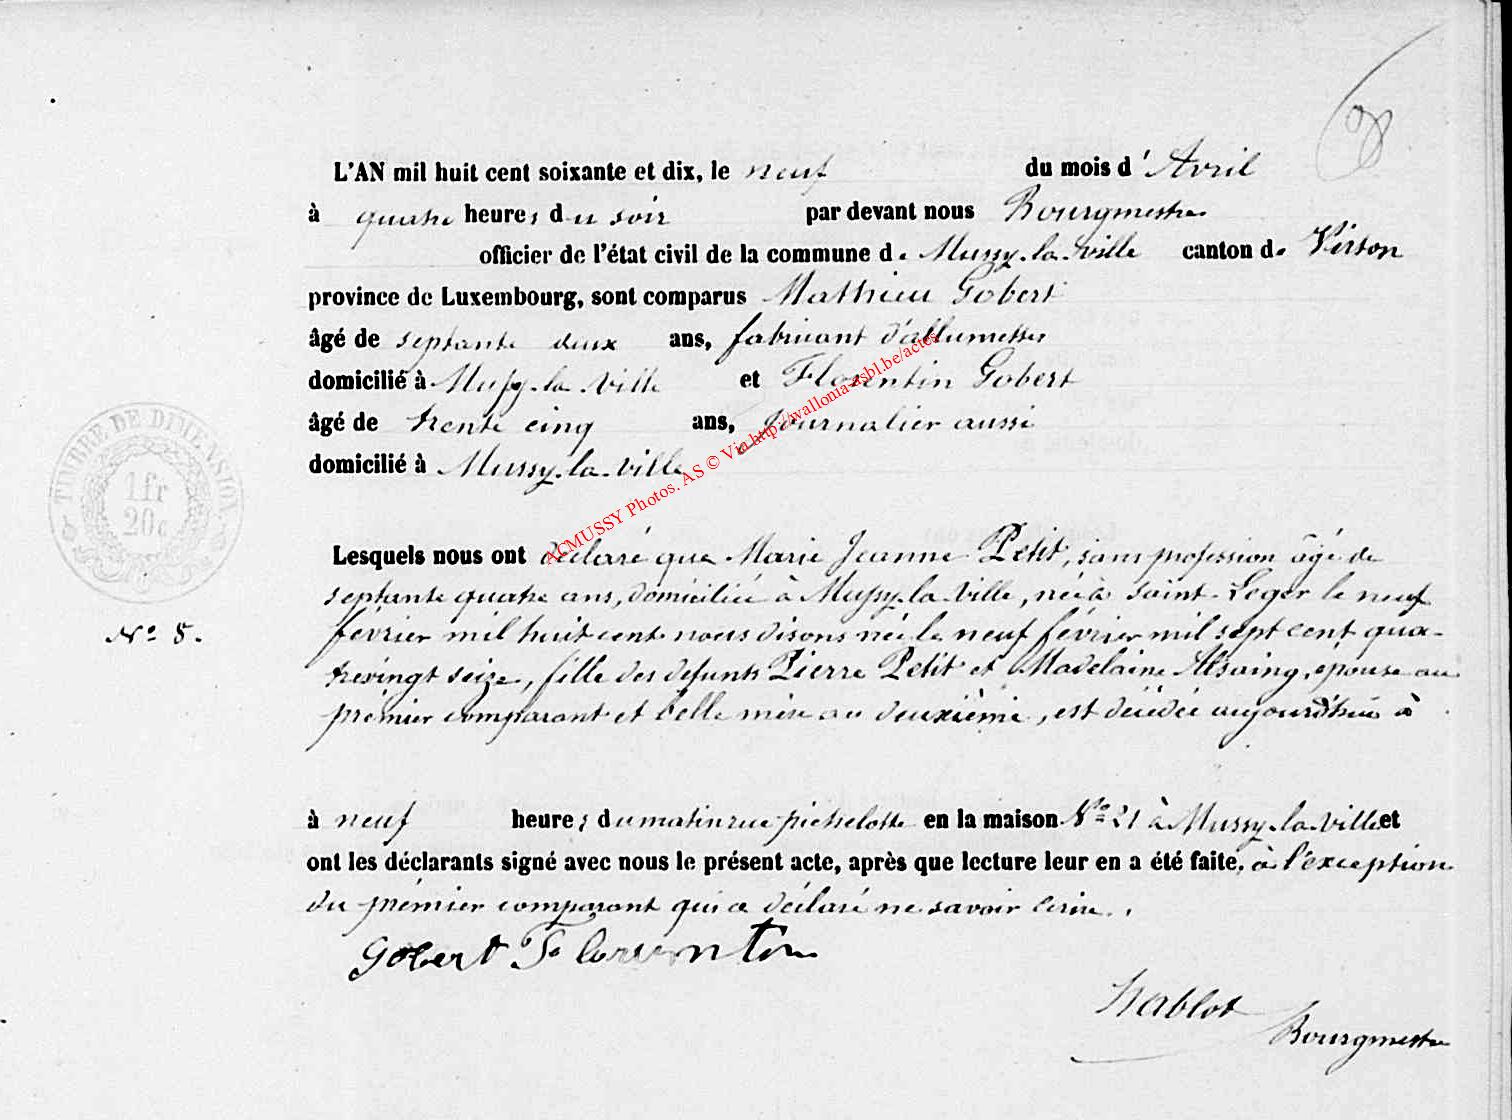 L'AN mil huit cent soixante et dix, le neuf du mois d' Avril
à quatre heures du soir par devant nous Bourgmestre
officier de l'état civil de la commune de Mussy-la-ville canton de Virton
province de Luxembourg, sont comparus Mathieu Gobert
âgé de septante deux ans, fabricant d'allumettes
domicilié à Mussy-la-Ville et Florentin Gobert
âgé de trente cinq ans, journalier aussi
domicilié à Mussy-la-ville
TIMBRE DE DIMENSION
1 fr
20 c
ACMUSSY Photos. AS © Via http://wallonia-asbl.be/actes
Lesquels nous ont déclaré que Marie Jeanne Petit, sans profession âgé de
septante quatre ans, domiciliée à Mussy-la-Ville, née à Saint-Leger le neuf
N° 8.
février mil huit cent nous disons née le neuf février mil sept cent qua-
trevingt seize, fille des defunts Pierre Petit et Madelaine Alsaing, épouse au
premier comparant et belle mère au deuxième, est décédée aujourd'hui à
à neuf heures du matin rue en la maison N° 21 à Mussy-la-Ville et
ont les déclarants signé avec nous le présent acte, après que lecture leur en a été faite, à l'exception
du prémier comparant qui a déclaré ne savoir écrire.
Gobert Florentin
Hablot
Bourgmestre